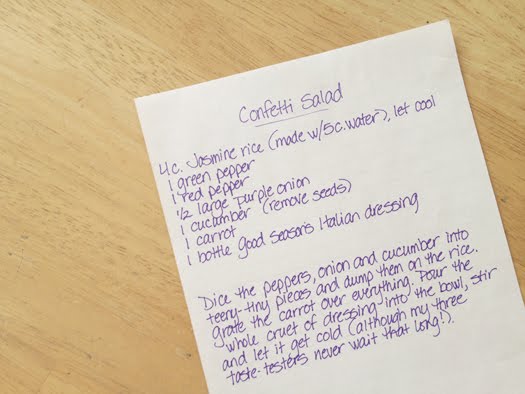 Confetti Salad
4 c. Jasmine rice (made w/5c. water), let cool
1 green pepper
1 red pepper
1/2 large purple onion
1 cucumber (remove seeds)
1 carrot
1 bottle good seasons Italian dressing
Dice the peppers, onion and cucumber into
teeny-tiny pieces and dump them on the rice.
grate the carrot over everything. Pour the
whole cruet of dressing into the bowl, stir
and let it get cold (although my three
taste-testers never wait that long!).